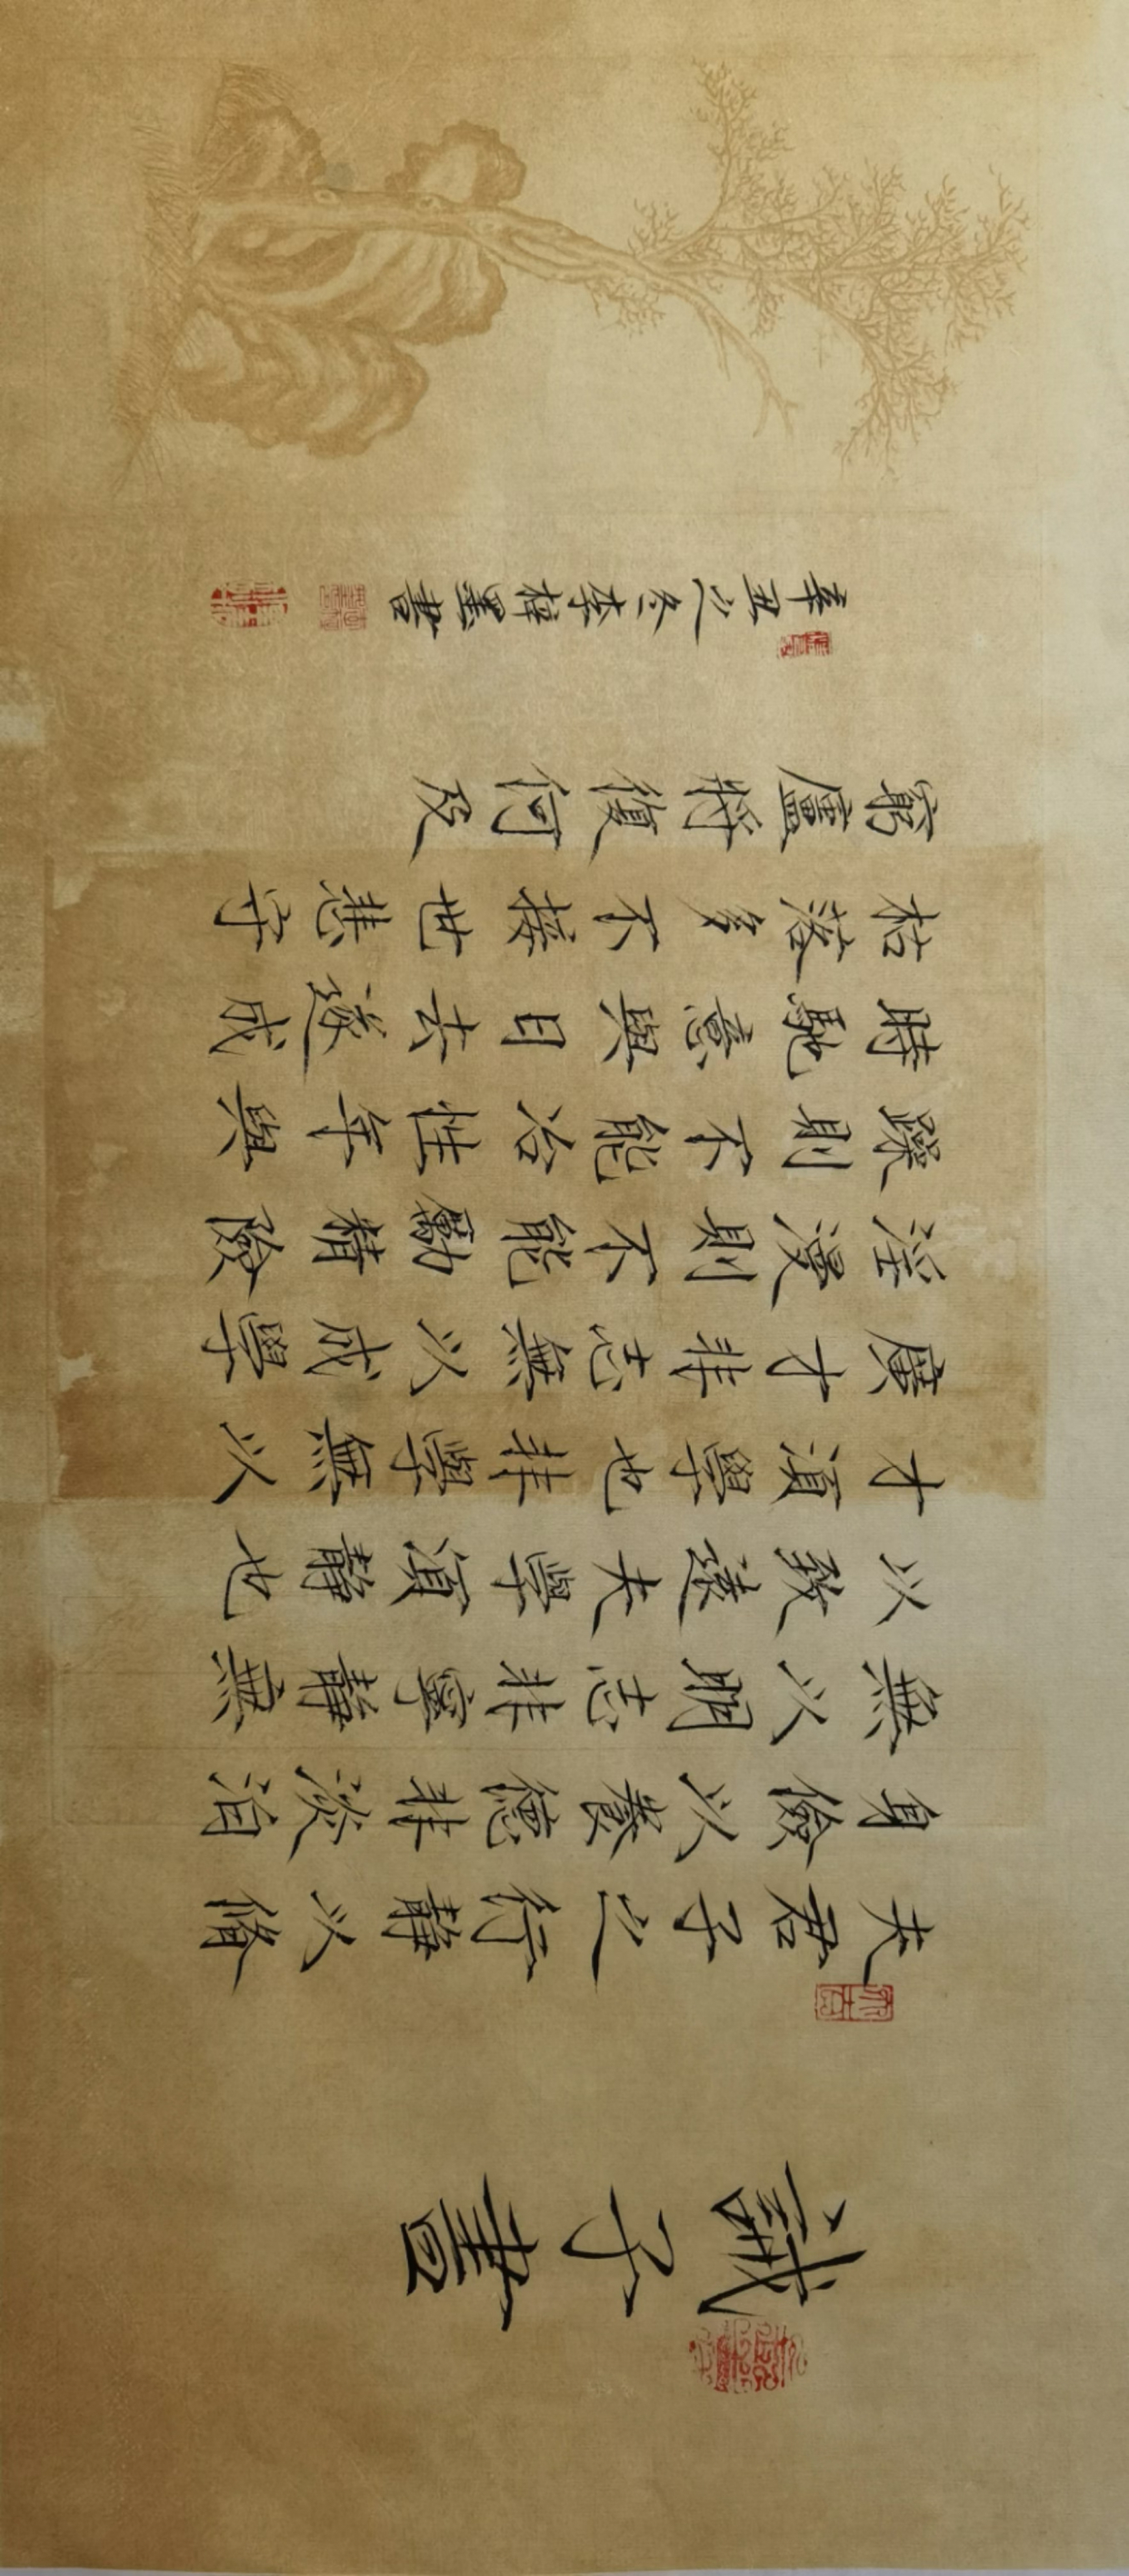 誡子書
夫君子之行靜以脩
身儉以養德非淡泊
無以明志非寧靜無
以致遠夫學須靜也
才須學也非學無以
廣才非志無以成學
淫漫則不能勵精險
躁則不能冶性年與
時馳意與日去遂成
枯落多不接世悲守
窮廬將復何及
辛丑之冬李梓墨書